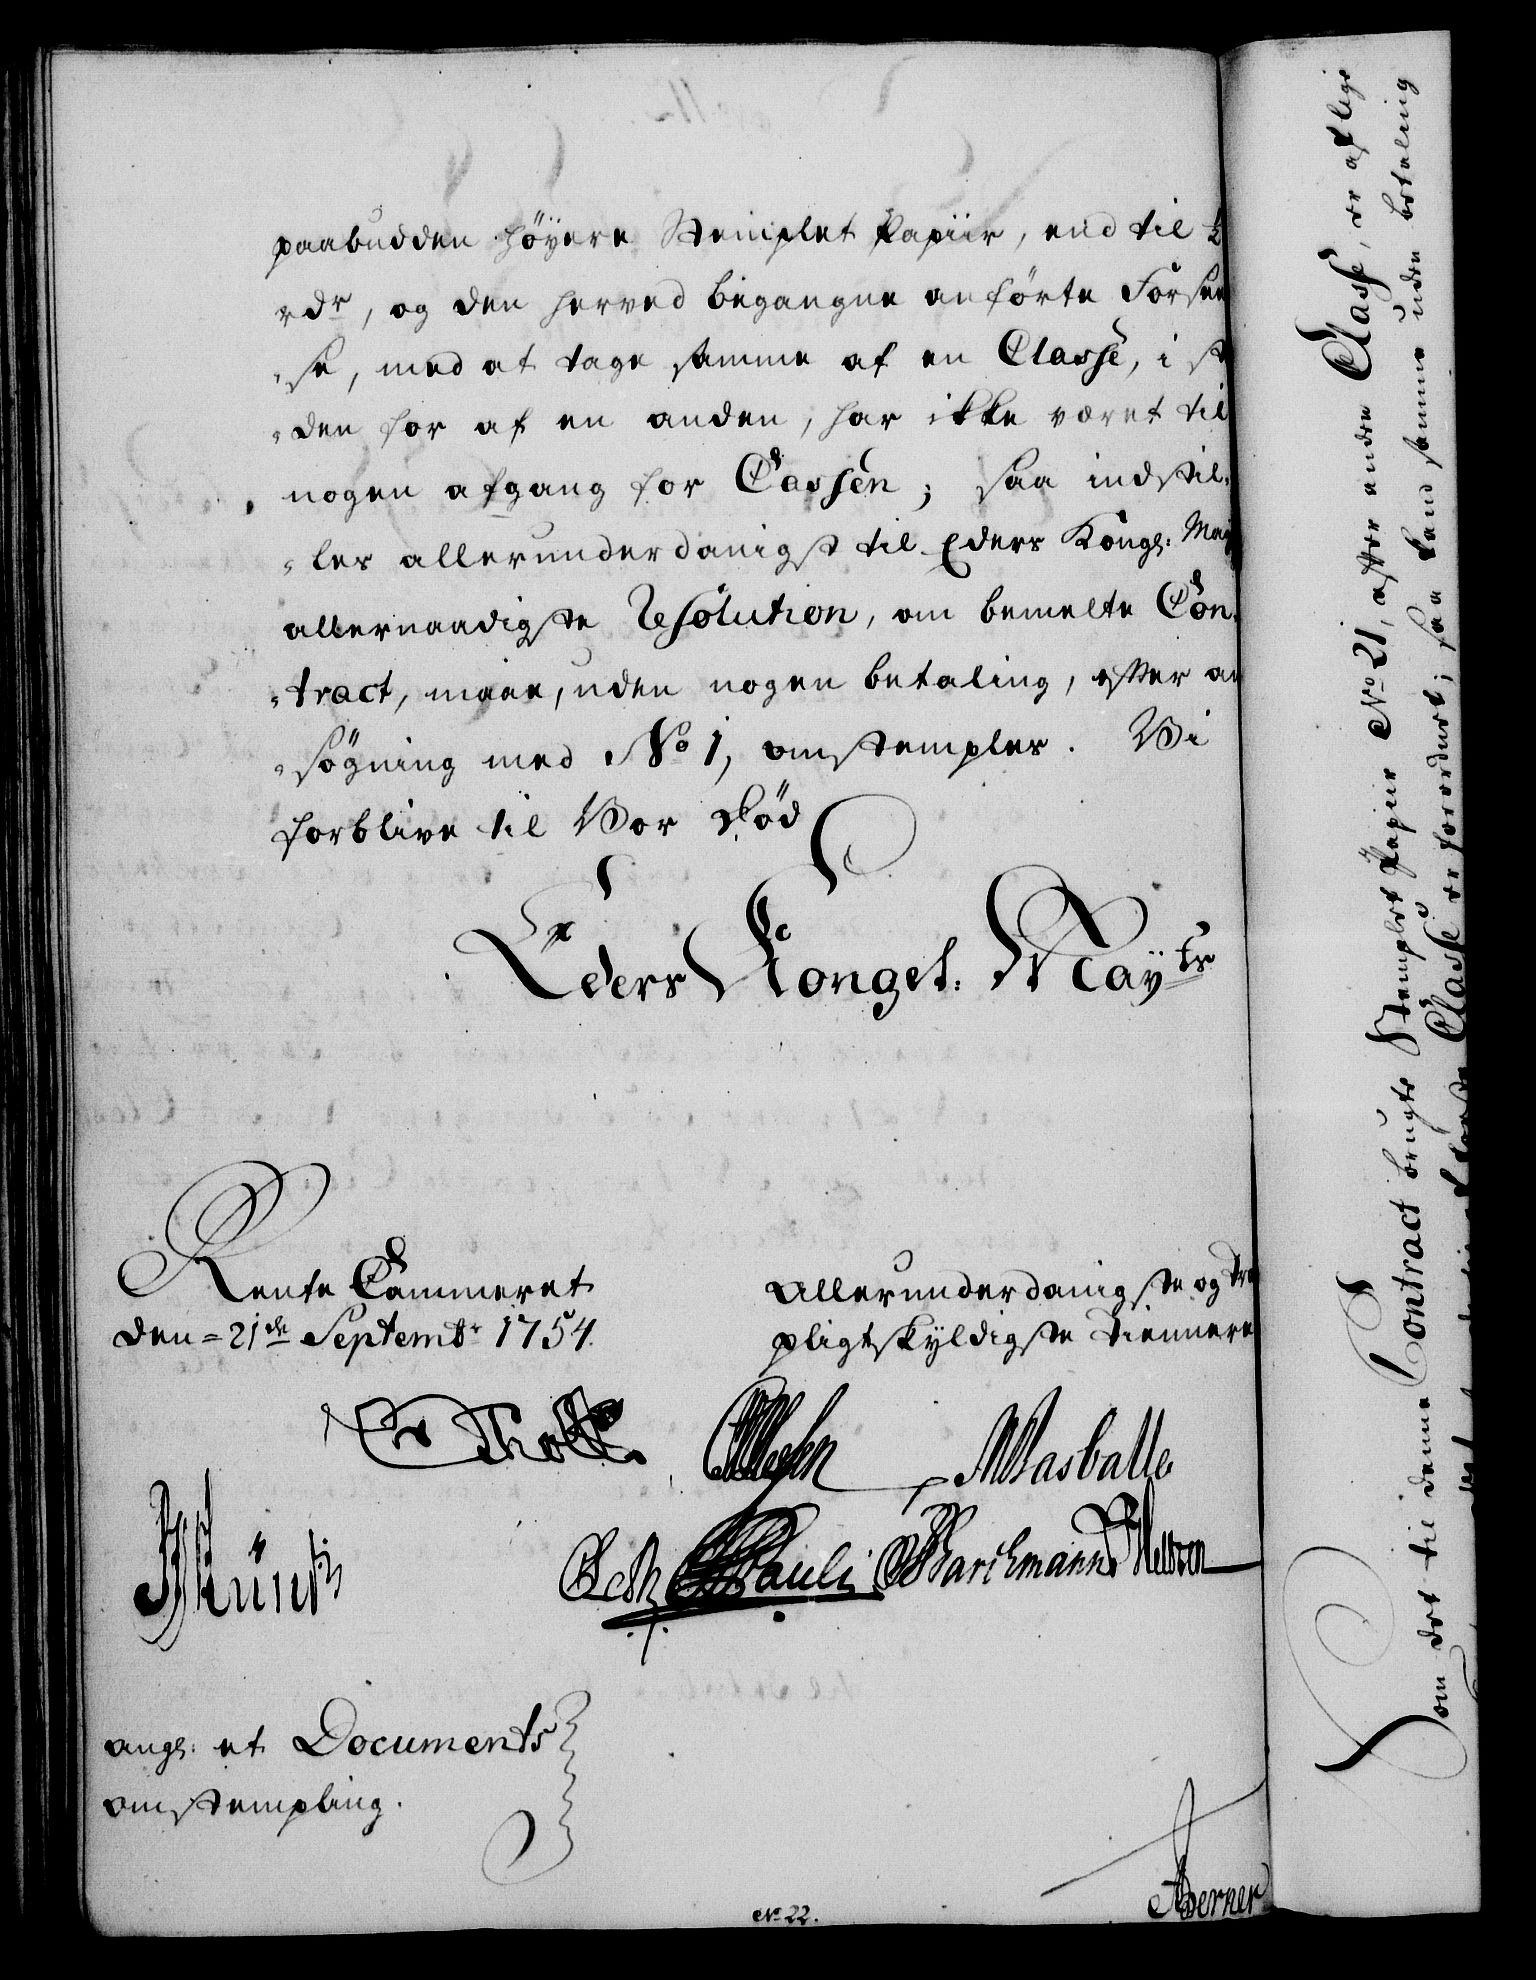 paabudden høyere Stemplet Papiir, end til
rdr, og den herved begangne anførte Forseel
„se, med at tage samme af en Classe, i ste
„den for af en anden, har ikke været til
nogen afgang for Cassen; saa indstil„
„les allerunderdanigst til Eders Kongl: May
allernaadigste Resolution, om bemelte Con„
„tract, maae, uden nogen betaling, efter an
„søgning med No 1, omstemples. Vi
forblive til Vor Død
Eders Kongel. Mayts
Rente Cammeret
den = 21de Septembr 1754.
Allerunderdanigste og tro
pligtskyldigste Tiennere
Pauli Barchmann
ang: et Documents
omstempling.
Berner
No 22.
Som det til denne Contract brugte Stemplet Papiir No 21, efter anden Classe, er af lige
Classe er forordnet; saa kand samme uden betaling